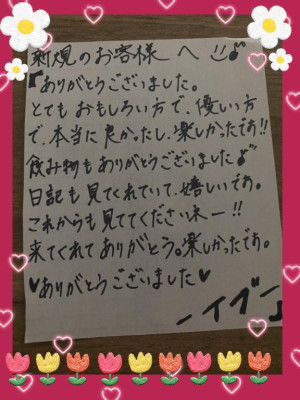 新規のお客様へ
『ありがとうございました。
とてもおもしろい方で、優しい方
で、本当に良かったし、楽しかったです!!
飲み物もありがとうございました♪
日記も見てくれていて、嬉しいです。
これからも見ててくださいネー!!
来てくれてありがとう。楽しかったです。
♥ありがとうございました♥
ーイブー♪